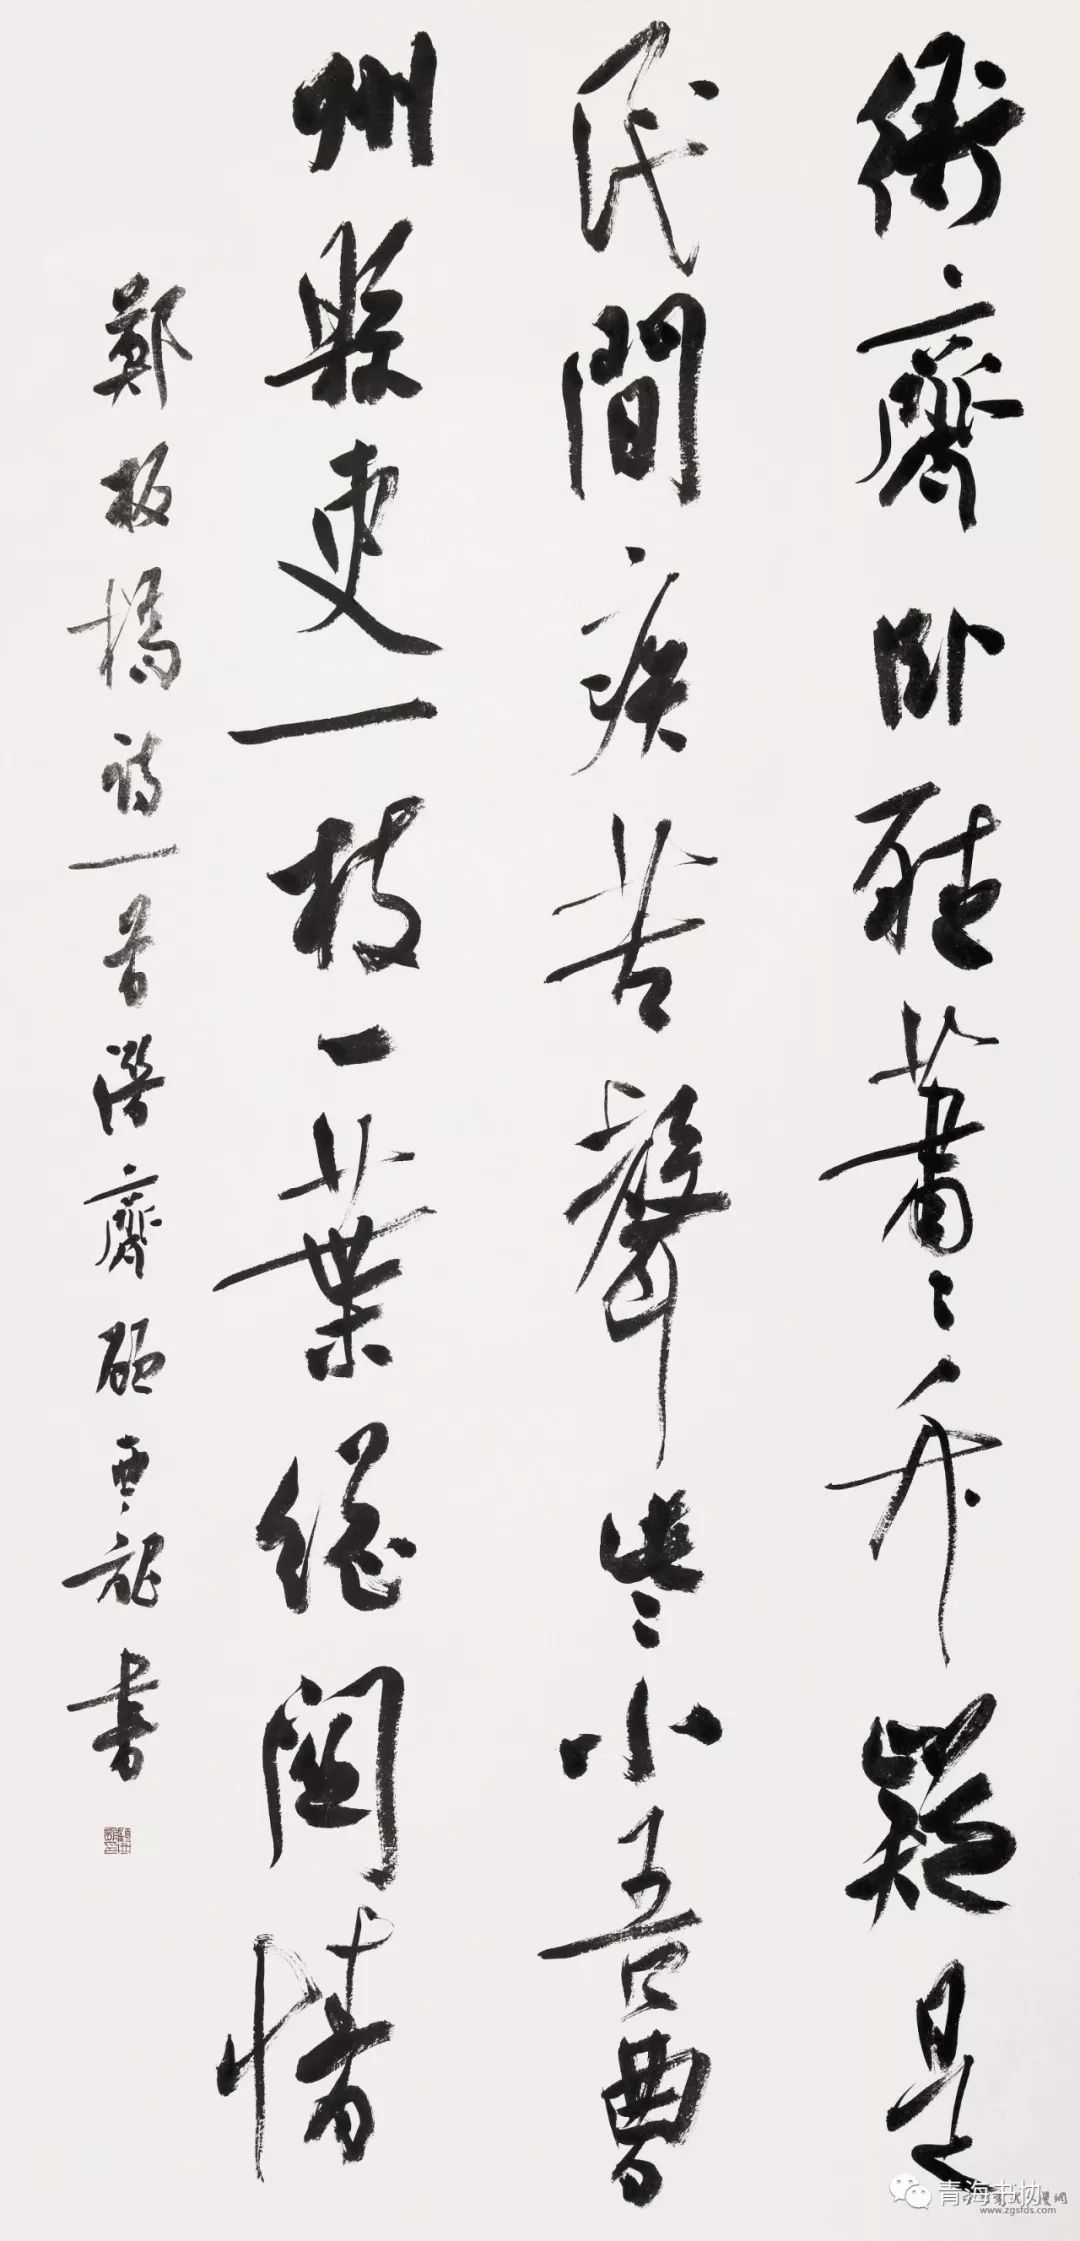 衙齋卧聽蕭〻竹疑是
民間疾苦聲些〻小吾曹
州縣吏一枝一葉總關情
鄭板橋詩一首潛齋顧亞龍書
青海书协
www.zgsfds.com